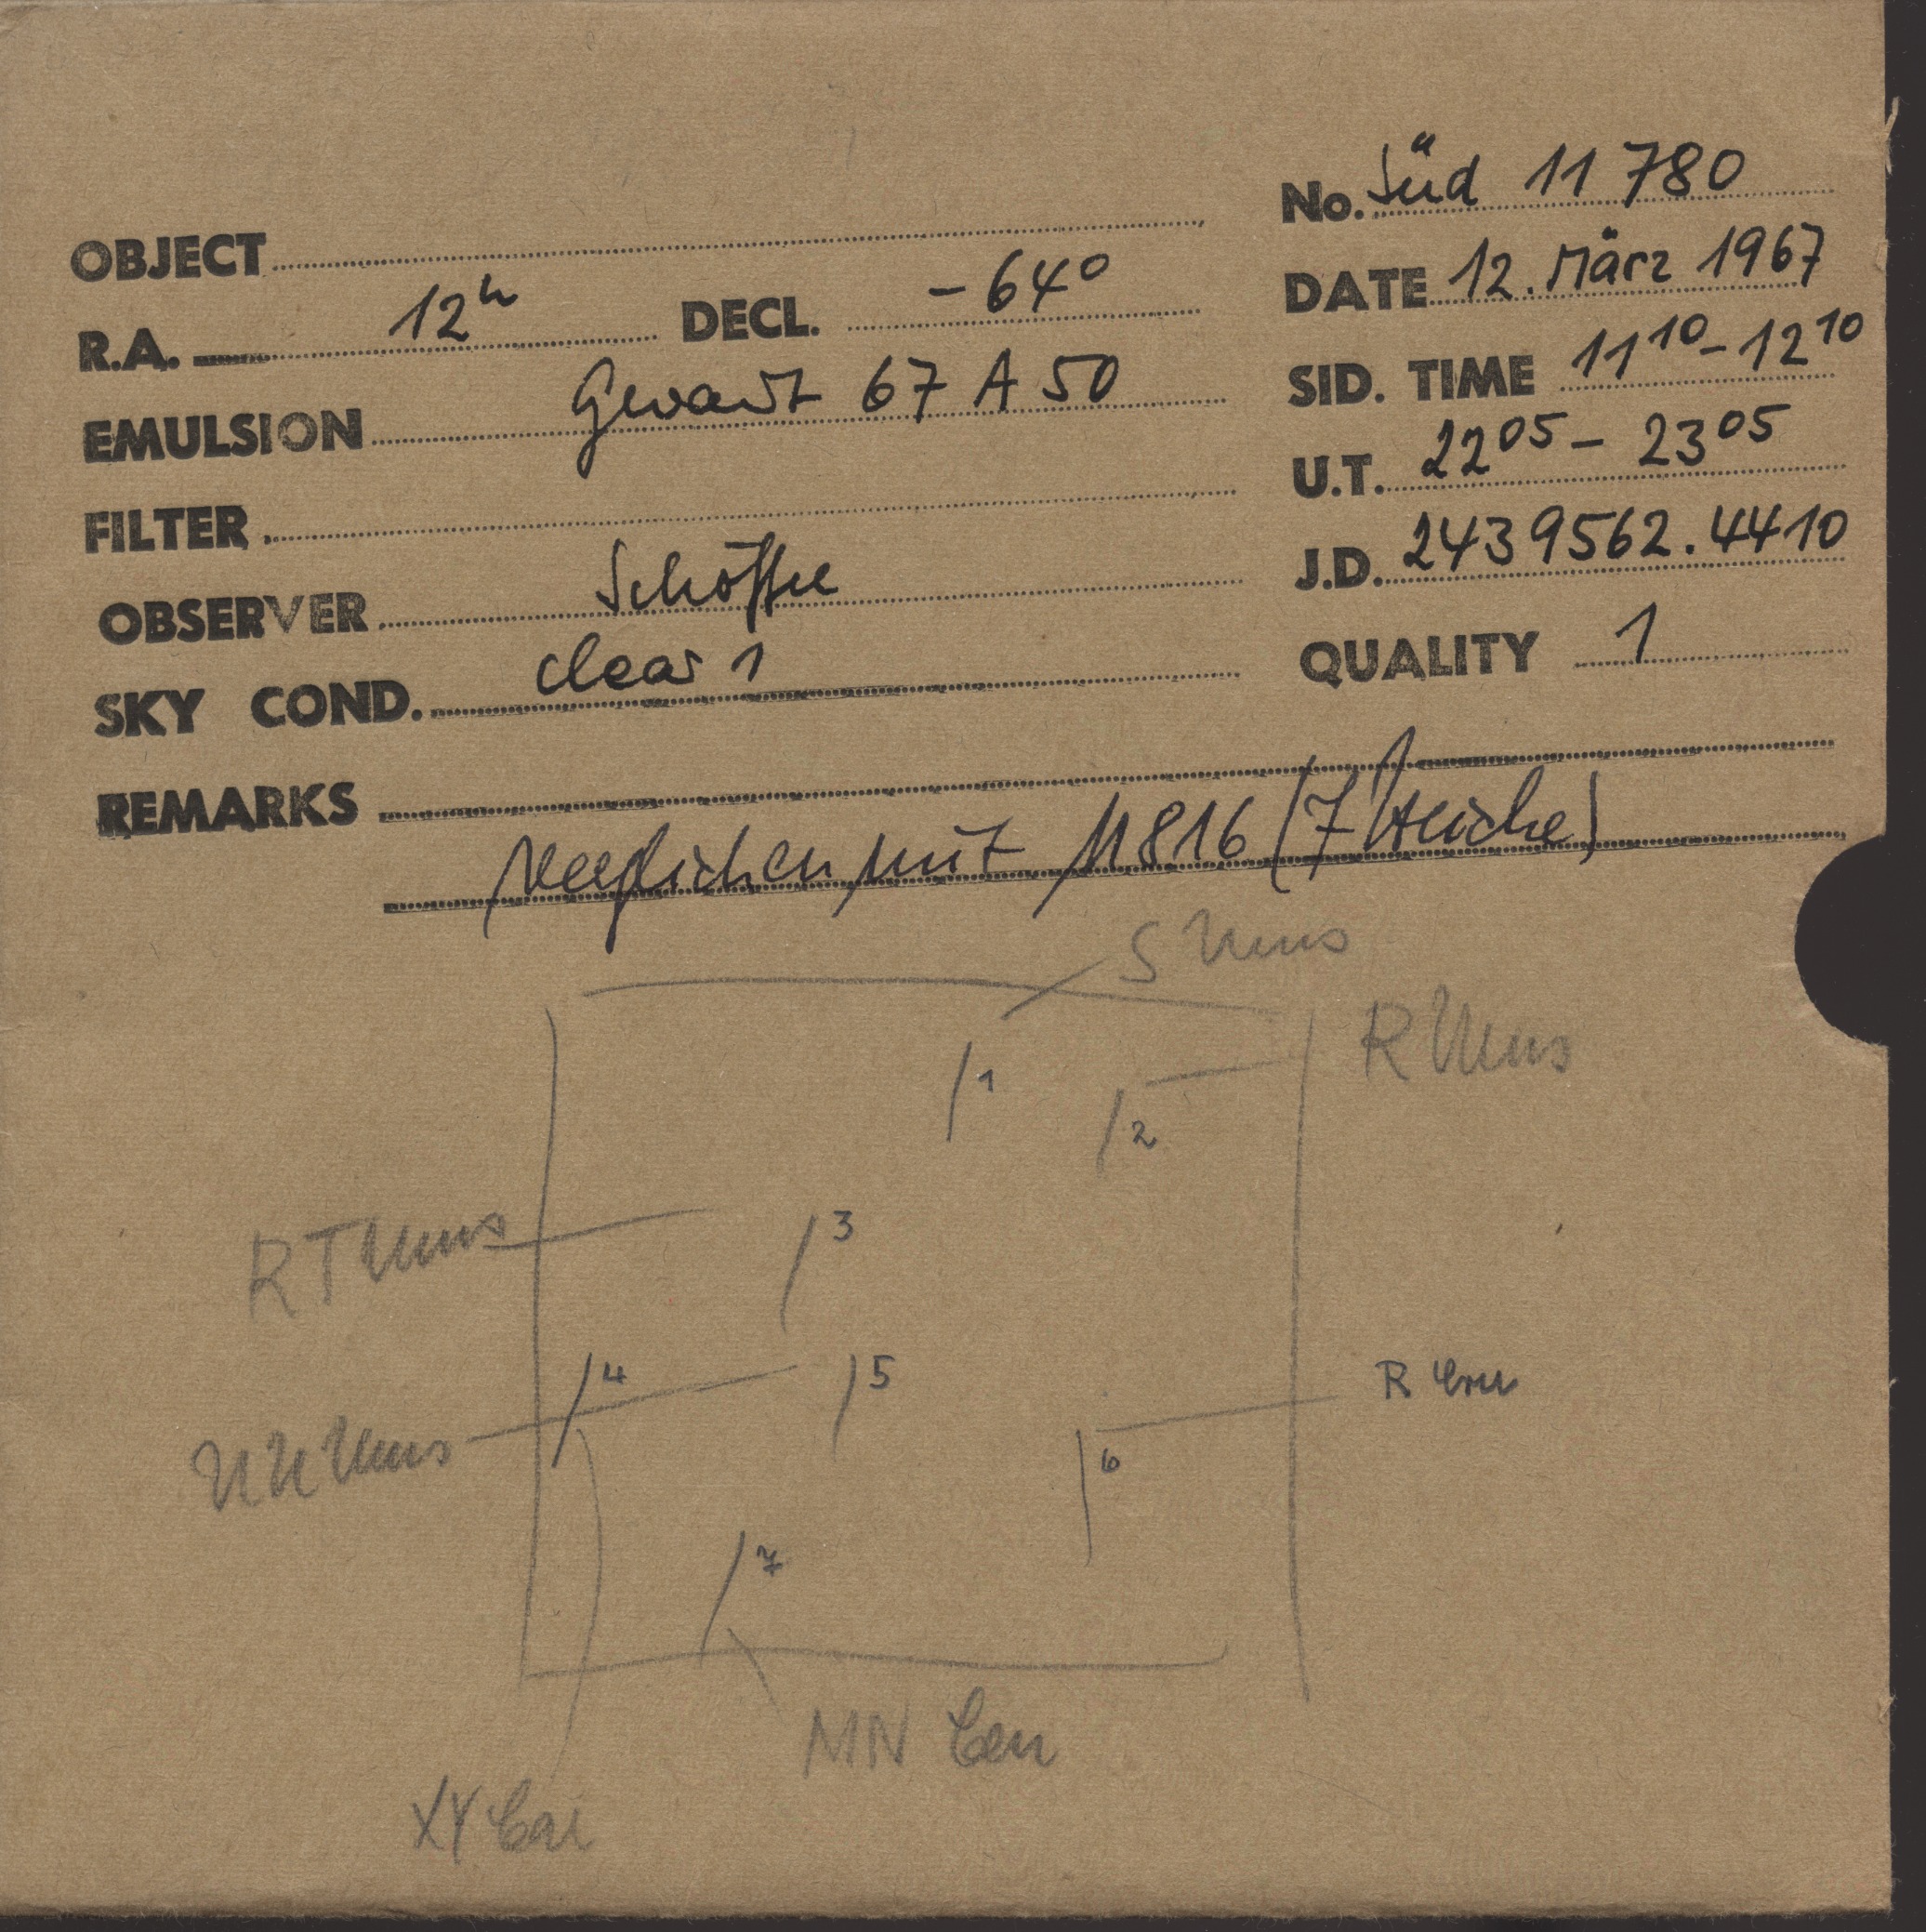 No. Süd 11 780
OBJECT
DATE 12. März 1967
R.A. 12h DECL. -64°
SID. TIME 11 10 - 12 10
EMULSION Gevaert 67 A 50
U.T. 22 05 - 23 05
FILTER
J.D. 2439562.4410
OBSERVER Schöffel
QUALITY 1
SKY COND. clear 1
REMARKS
Verglichen mit 11816 (7 Striche)
S Mus
R Mus
1
2
RT Mus
3
4
5
R Cru
UU Mus
6
7
MN Cen
XY Car